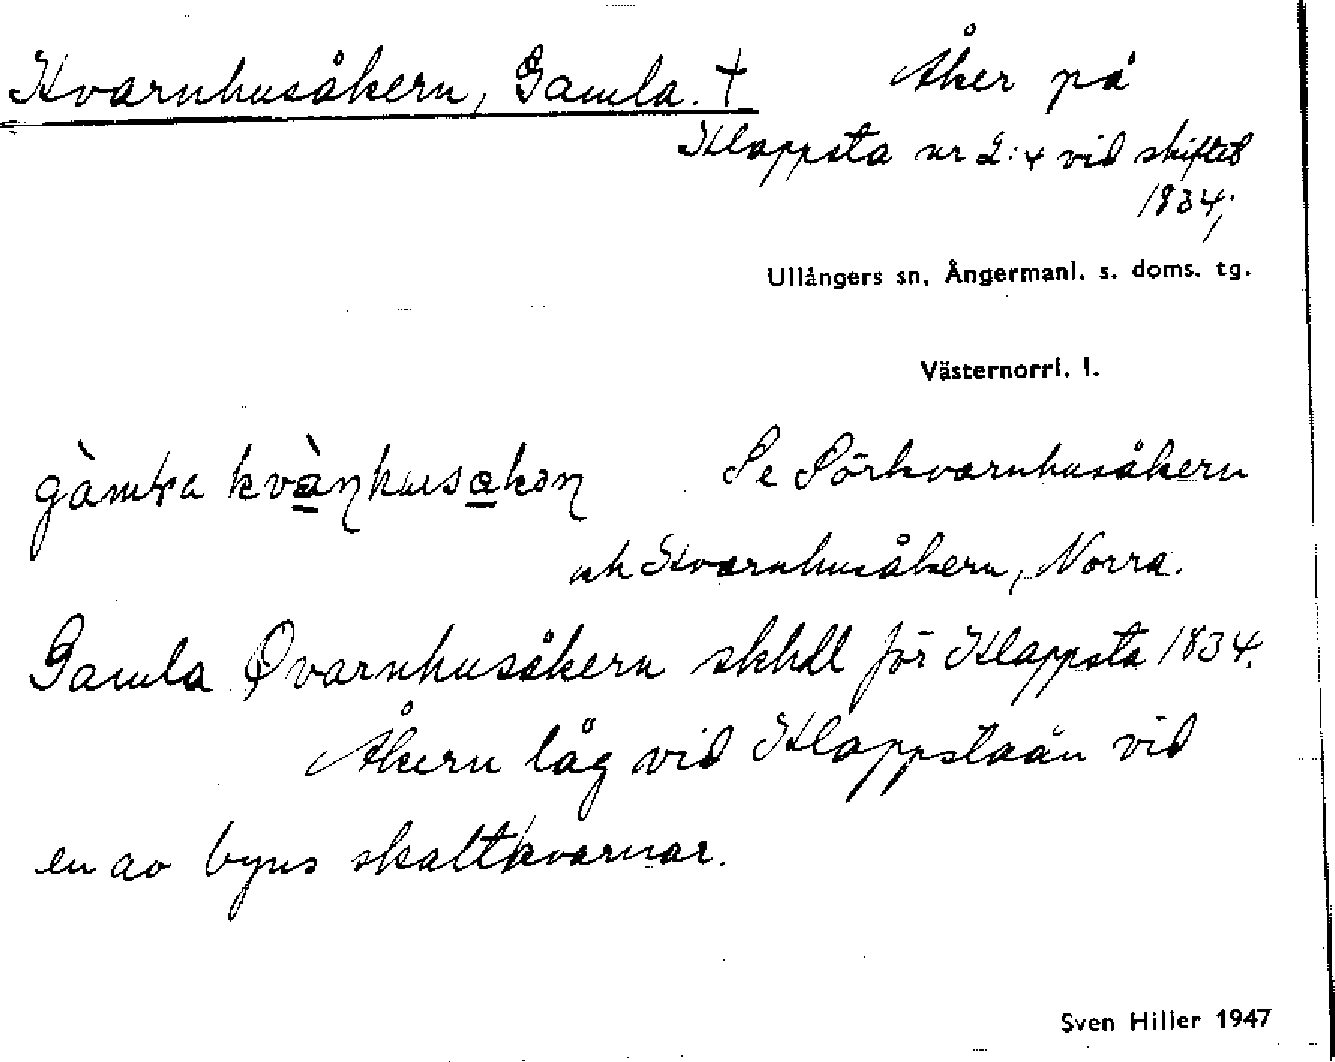 Kvarnhusåkern, Gamla. † Åker på
Klappsta nr 2:4 vid skiftet
1834;
Ullångers sn, Ångermanl. s. doms. tg.
Västernorrl. l.
Se Sörkvarnhusåkern
och Kvarnhusåkern, Norra.
Gamla Qvarnhusåkern skhdl för Klappsta 1834.
Åkern låg vid Klappstaån vid
en av byns skattkvarnar.
Sven Hiller 1947